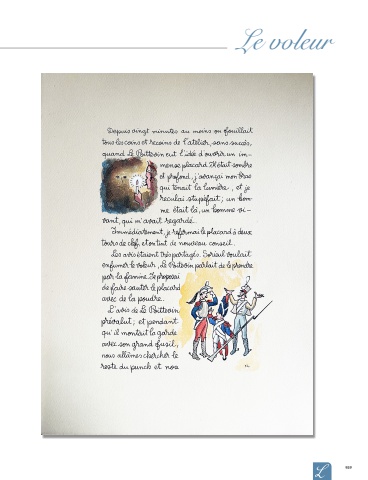 Le voleur
Depuis vingt minutes au moins on fouillait
tous les coins et recoins de l'atelier, sans succès,
quand Le Poittevin eut l'idée d'ouvrir un im-
mense placard. Il était sombre
et profond, j'avançai mon bras
qui tenait la lumière, et je
reculai stupéfait; un hom-
me était là, un homme vi-
vant, qui m'avait regardé.
Immédiatement, je refermai le placard à deux
tours de clef, et on tint de nouveau conseil.
Les avis étaient très partagés. Sorieul voulait
enfumer le voleur, Le Poittevin parlait de le prendre
par la famine. Je proposai
de faire sauter le placard
avec de la poudre.
L'avis de Le Poittevin
prévalut; et pendant
qu'il montait la garde
avec son grand fusil,
nous allâmes chercher le
reste du punch et nos
L